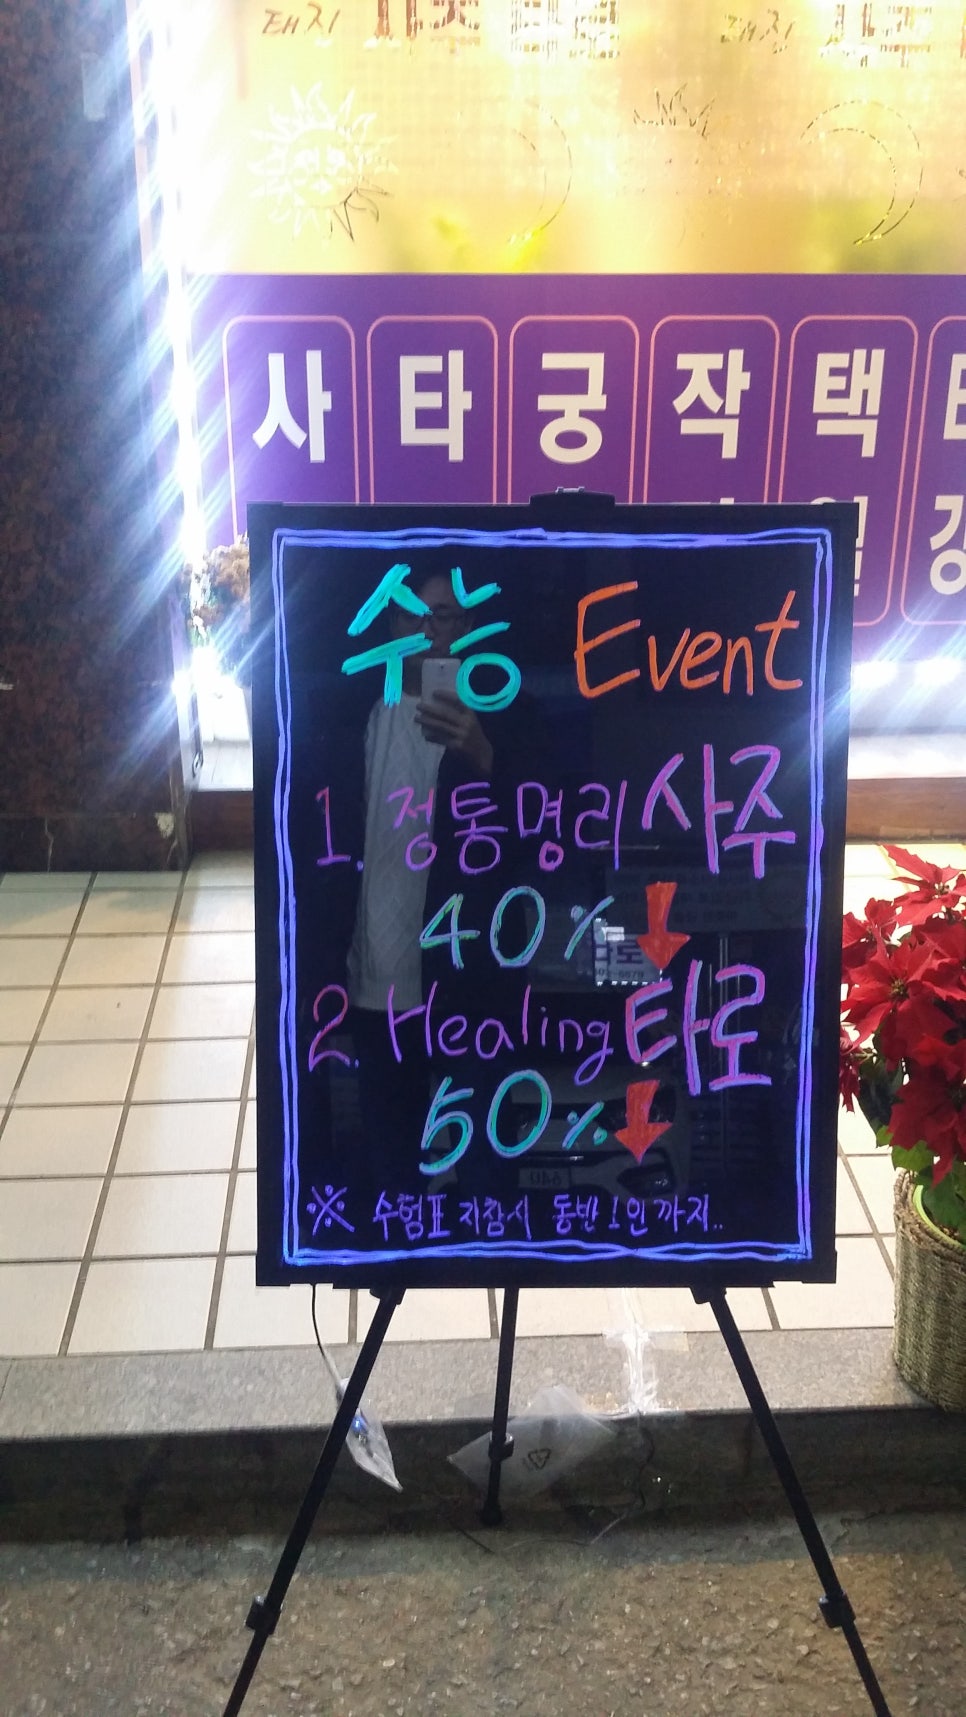 사 타 궁 작 택
수능 Event
1. 정통명리 사주
40%
2. Healing 타로
50%
※ 수험표 지참시 동반 1인 까지..